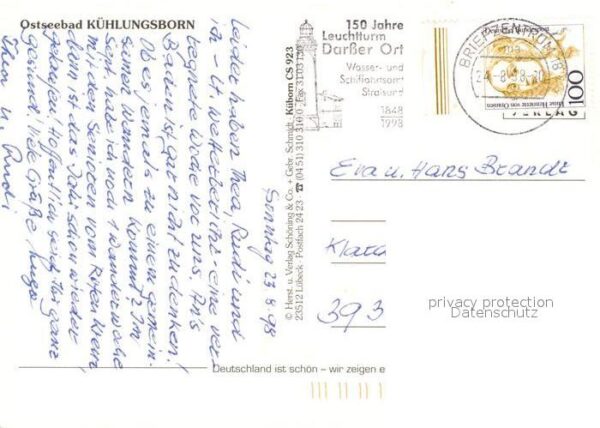 Ostseebad KÜHLUNGSBORN
Sonntag 23.8.98
Leider haben Thea, Rudi und
ich - lt. Wetterbericht eine ver-
regnete Woche vor uns. An's
Baden ist gar nicht zu denken!
Ob es jemals zu einem gemein-
samen Wandern kommt? Im
Sept. habe ich noch 1 Wanderwoche
mit den Senioren vom Roten Kreuz
dann ist das Jahr schon wieder
gelaufen. Hoffentlich seid Ihr ganz
gesund. Viele Grüße Inge
Thea u. Rudi
© Herst. u. Verlag Schöning & Co. + Gebr. Schmidt, Külborn CS 923
23512 Lübeck · Postfach 24 23 · ☎ (04 51) 310 310 · Fax 31 03 130
150 Jahre
Leuchtturm
Darßer Ort
Wasser- und
Schiffahrtsamt
Stralsund
1848
1998
BRIEFZENTRUM 18
24.-8.98
Deutsche Bundespost
Luise Henriette von Oranien
100
VERLAG
Eva u. Hans Brandt
Klatta
393
privacy protection
Datenschutz
Deutschland ist schön – wir zeigen e